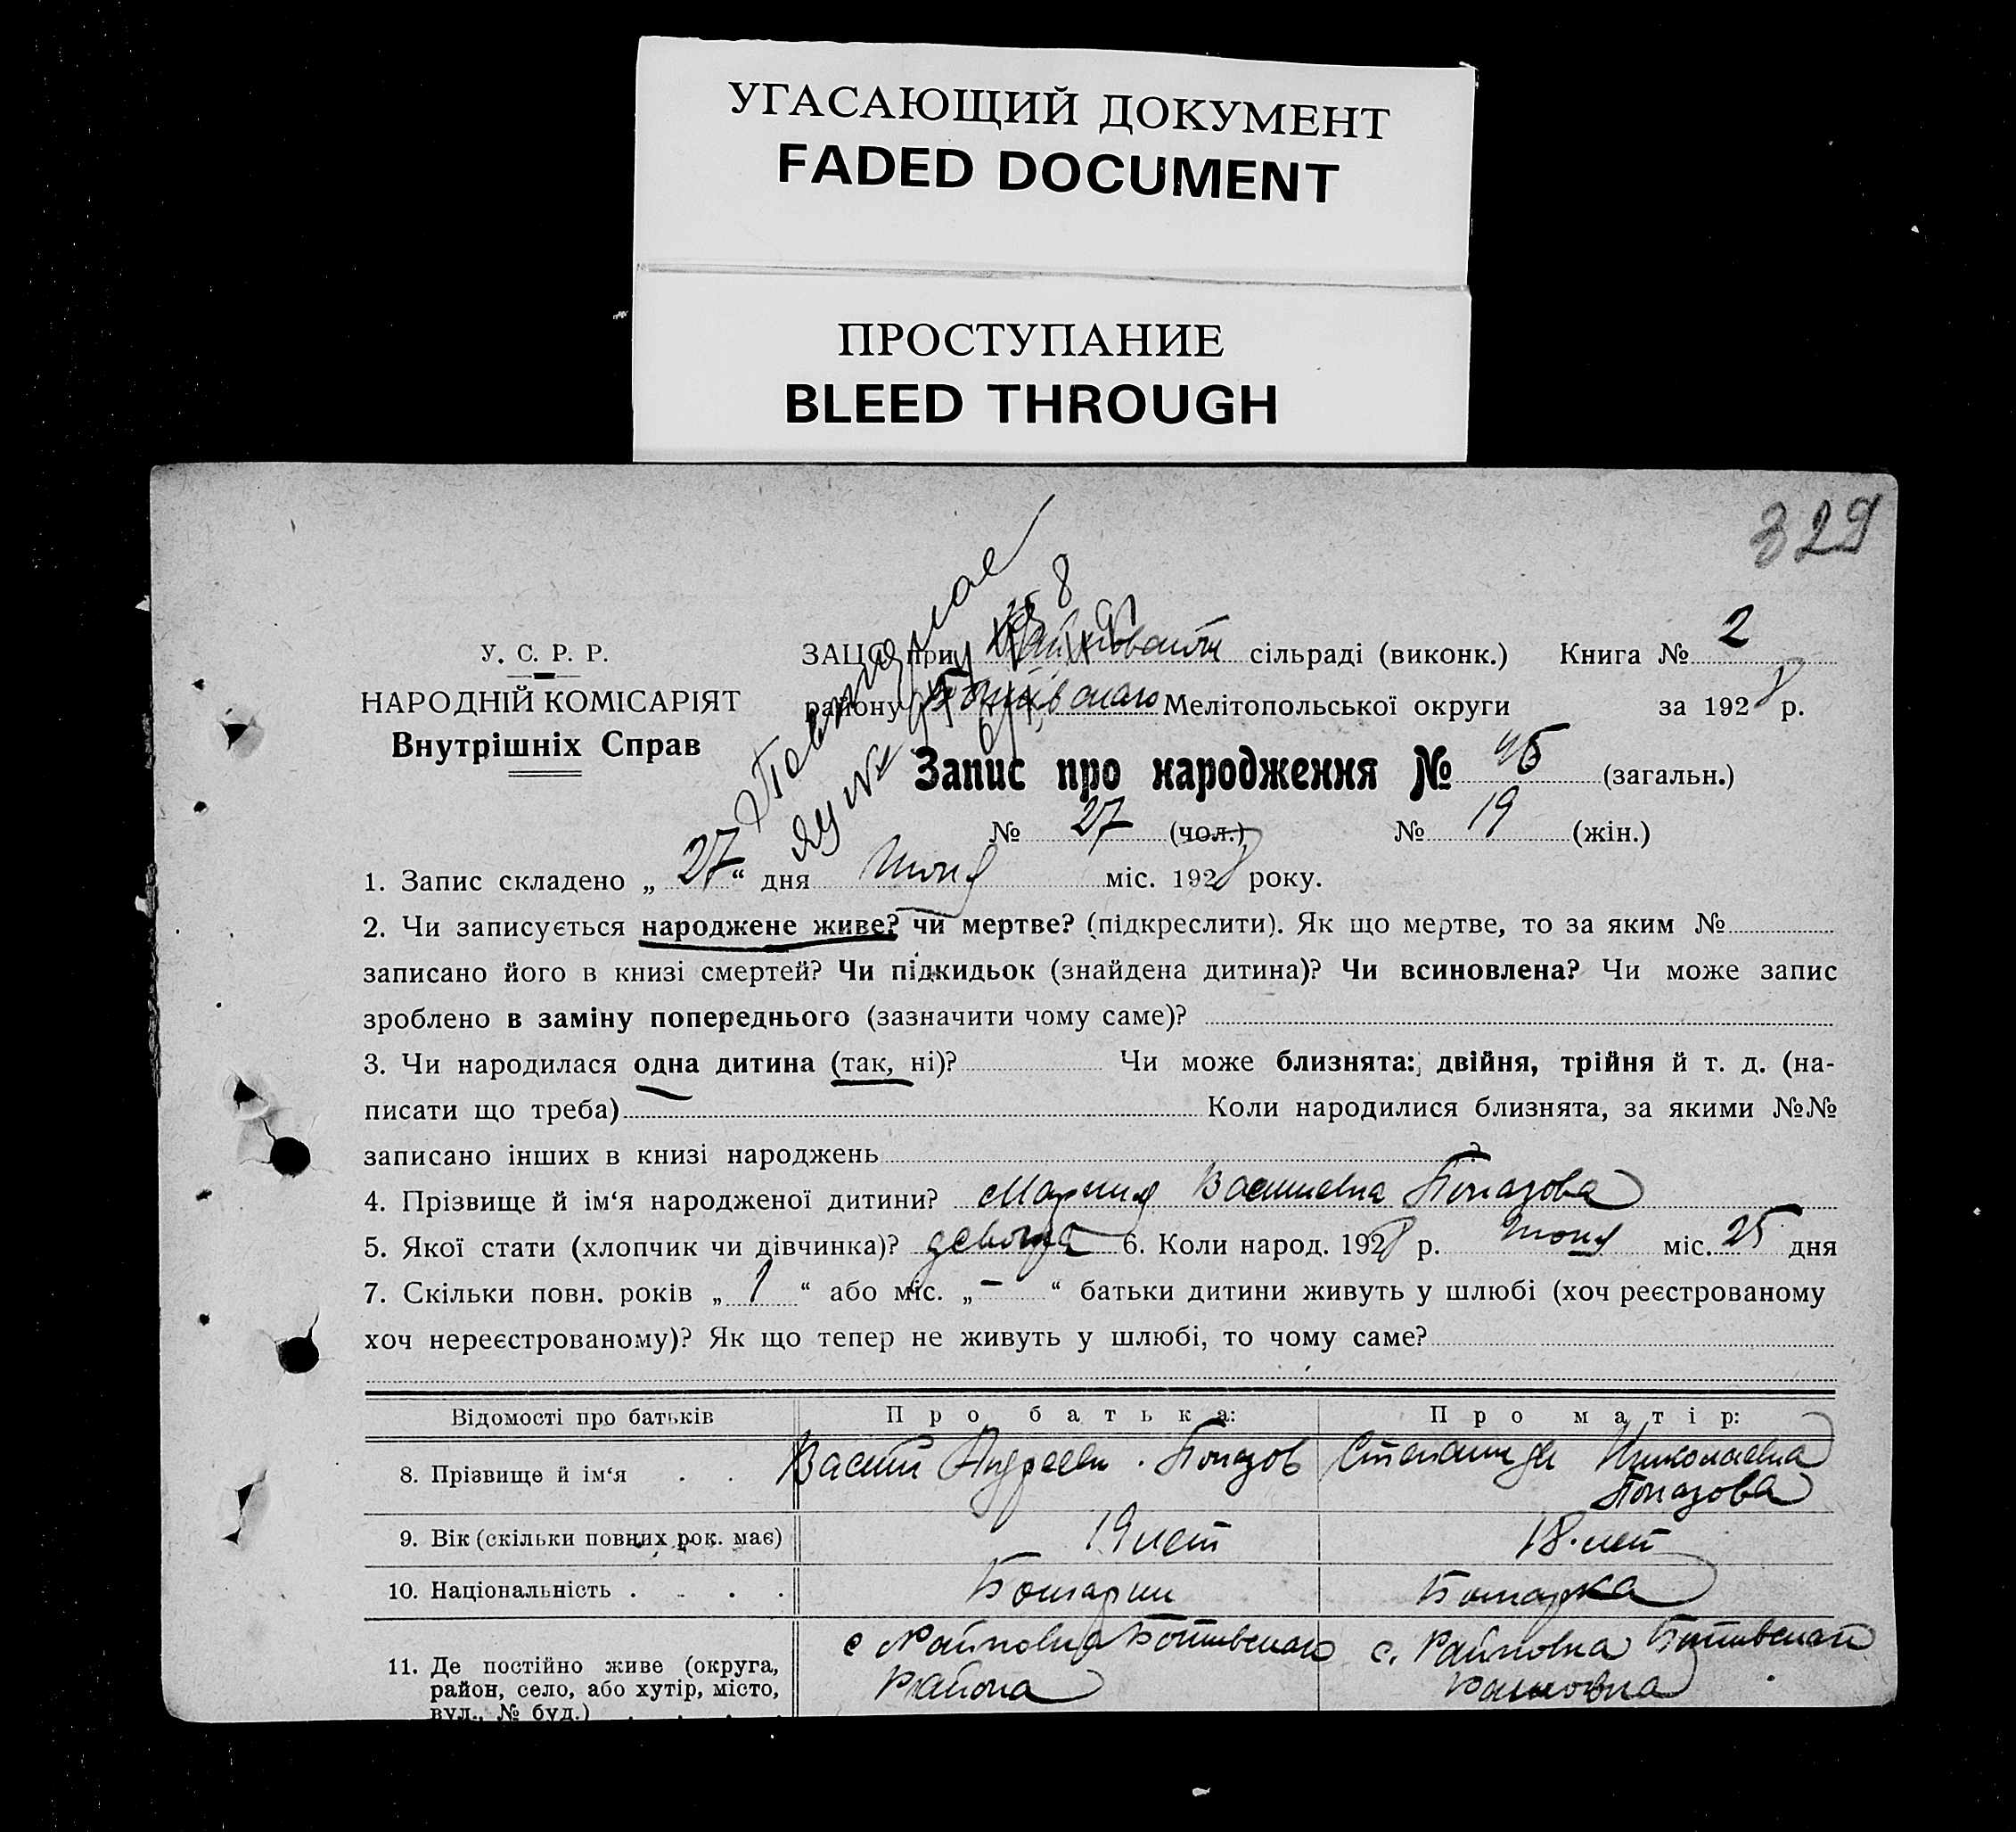 УГАСАЮЩИЙ ДОКУМЕНТ
FADED DOCUMENT
ПРОСТУПАНИЕ
BLEED THROUGH
329
У. С. Р. Р.
НАРОДНІЙ КОМІСАРІЯТ
Внутрішніх Справ
ЗАЦС при сільраді (виконк.) Книга № 2
району Мелітопольської округи за 1928 р.
Запис про народження № 46 (загальн.)
№ 27 (чол.) № 19 (жін.)
1. Запис складено „ 27 “ дня Июня міс. 1928 року.
2. Чи записується народжене живе? чи мертве? (підкреслити). Як що мертве, то за яким №
записано його в книзі смертей? Чи підкидьок (знайдена дитина)? Чи всиновлена? Чи може запис
зроблено в заміну попереднього (зазначити чому саме)?
3. Чи народилася одна дитина (так, ні)? Чи може близнята: двійня, трійня й т. д. (на-
писати що треба) Коли народилися близнята, за якими №№
записано інших в книзі народжень ?
4. Прізвище й ім‘я народженої дитини? Мария Васильевна
5. Якої стати (хлопчик чи дівчинка)? 6. Коли народ. 1928 р. Июня міс. 25 дня
7. Скільки повн. років „ 1 “ або міс. „ – “ батьки дитини живуть у шлюбі (хоч реєстрованому
хоч нереєстрованому)? Як що тепер не живуть у шлюбі, то чому саме?
Відомості про батьків Про батька: Про матір:
8. Прізвище й ім‘я . . Степанида Николаевна
9. Вік (скільки повних рок. має) 19 лет 18 лет
10. Національність . . . . Болгарин Болгарка
11. Де постійно живе (округа, с Райновка Ботивскаго с. Райновка
район, село, або хутір, місто, Района
вул., № буд.) . . . .